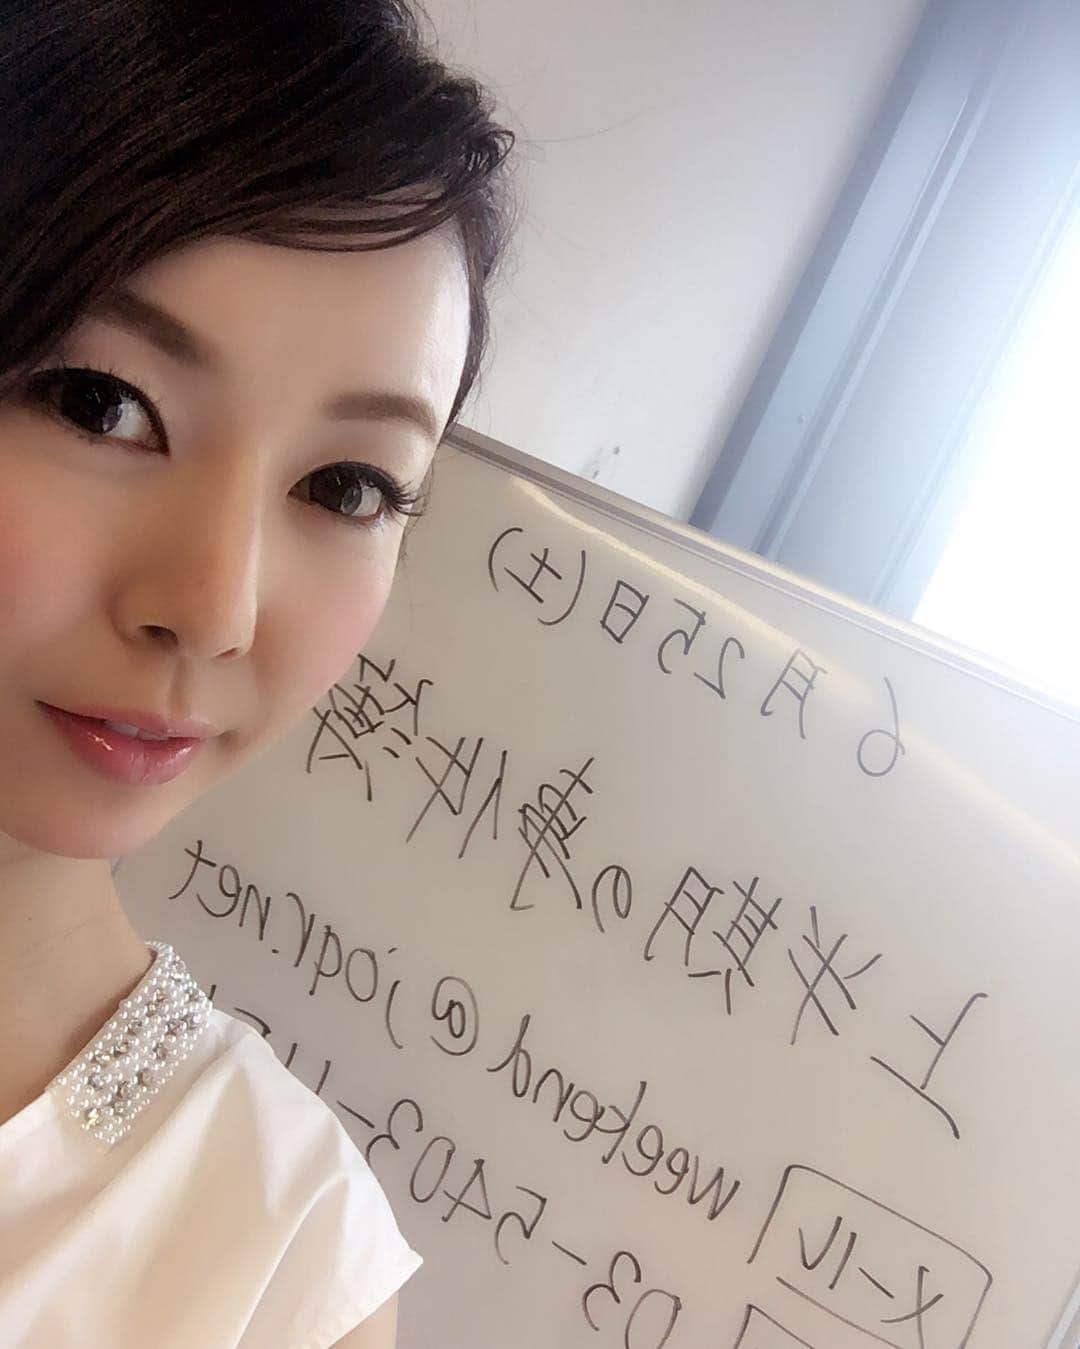 6月25日(土)
上半期の事件簿
メール weekend@joqr.net
03-5403-